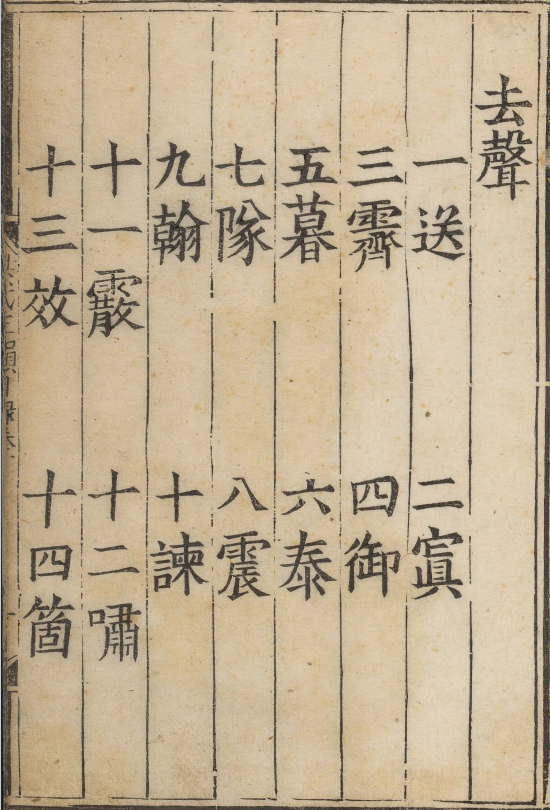 去聲
一送 二寘
三霽 四御
五暮 六泰
七隊 八震
九翰 十諫
十一霰 十二嘯
十三效 十四箇